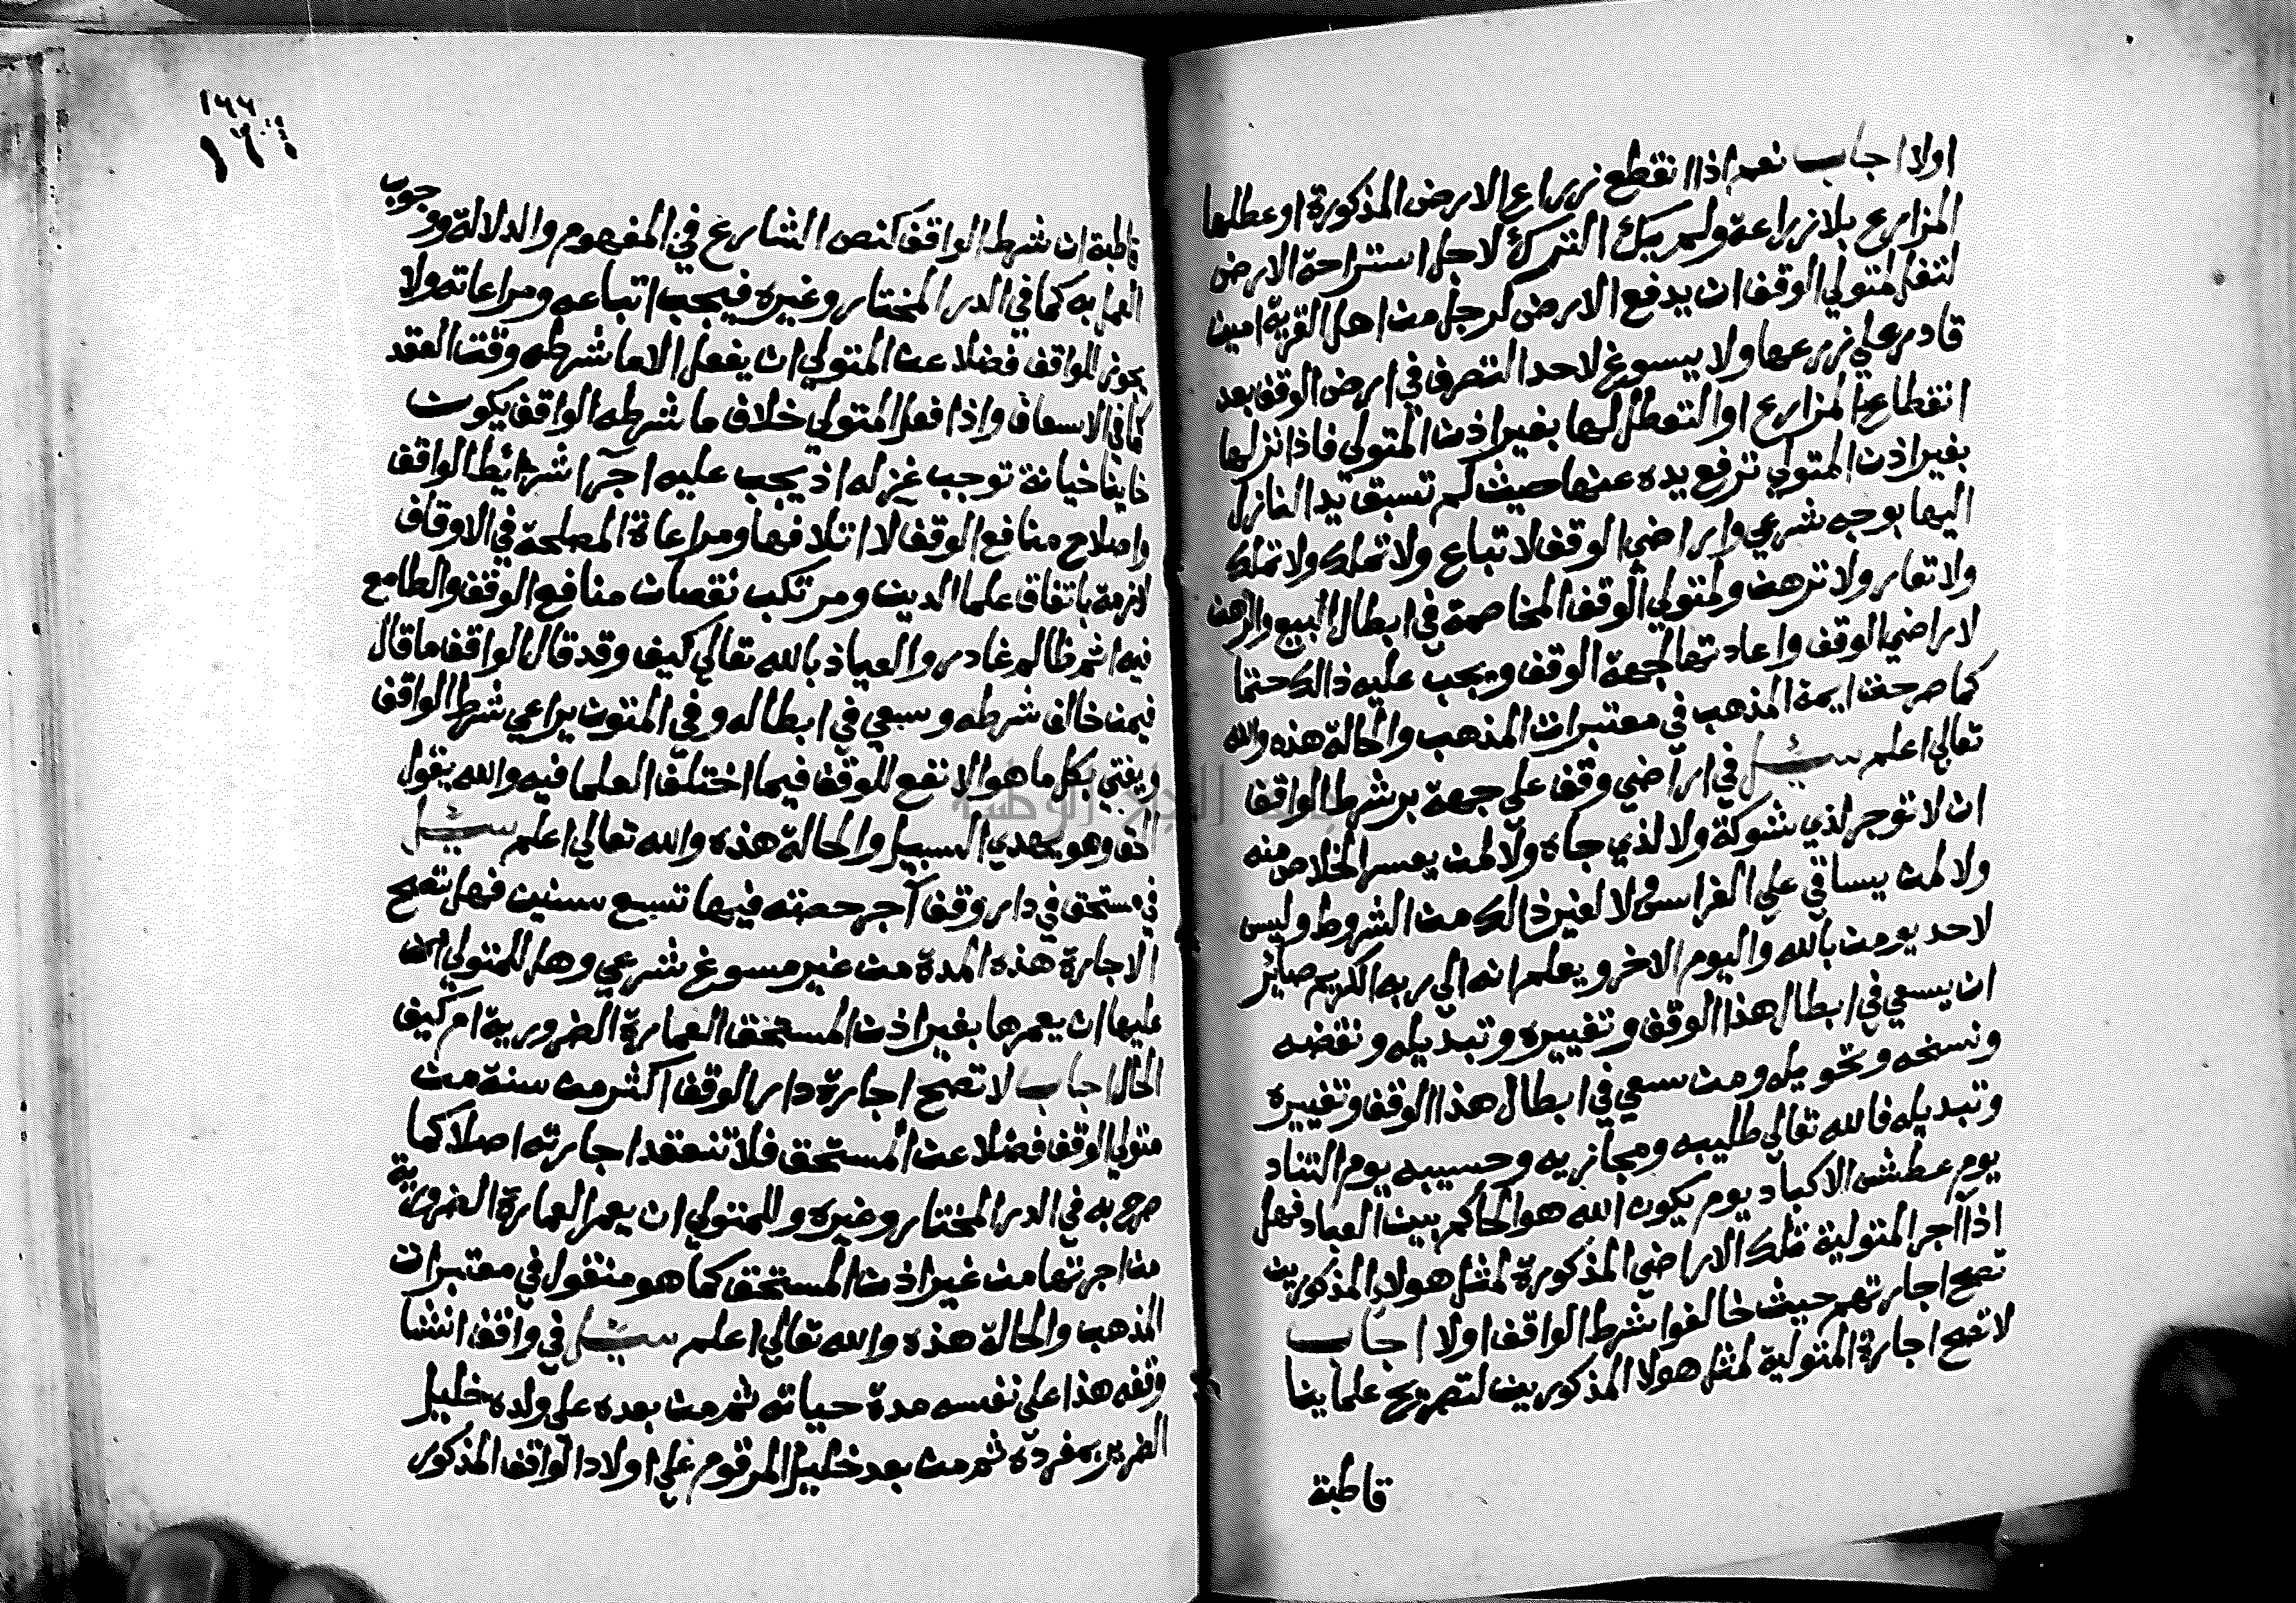 اولا اجاب نعم اذا انقطع زراع الارض المذكورة او عطلها
المزارع بلا زراعة ولم يكن الترك لاجل استراحة الارض
لتغل لمتولي الوقف ان يدفع الارض لرجل من اهل القرية امين
قادر علي زرعها ولا يسوغ لاحد التصرف في ارض الوقف بعد
انقطاع المزارع او التعطل لها بغير اذن المتولي فاذا نزلها
بغير اذن المتولي ترفع يده عنها حيث لم تسبق يد النازل
اليها بوجه شرعي واراضي الوقف لا تباع ولا تملك ولا تملك
ولا تعار ولا ترهن ولمتولي الوقف المخاصمة في ابطال البيع والرهن
لاراضي الوقف واعادتها لجهة الوقف ويجب عليه ذالك حتما
كما صرحت ايمة المذهب في معتبرات المذهب والحالة هذه والله
تعالي اعلم سئل في اراضي وقف علي جهة بر شرط الواقف
ان لا توجر لذي شوكة ولا لذي جاه ولا لمن يعسر الخلاص منه
ولا لمن يساقي علي الغراس ولا لغير ذالك من الشروط وليس
لاحد يومن بالله واليوم الاخر ويعلم انه الي ربه الكريم صاير
ان يسعي في ابطال هذا الوقف وتغييره وتبديله ونقضه
ونسخه وتحويله ومن سعي في ابطال هذا الوقف وتغييره
وتبديله فالله تعالي طليبه ومجازيه وحسيبه يوم التناد
يوم عطش الاكباد يوم يكون الله هو الحاكم بين العباد فهل
اذا اجر المتولية تلك الاراضي المذكورة لمثل هولاء المذكورين
تصح اجارتهم حيث خالفوا شرط الواقف اولا اجاب
لا تصح اجارة المتولية لمثل هولا المذكورين لتصريح علماينا
قاطبة
١٦٦
قاطبة ان شرط الواقف كنص الشارع في المفهوم والدلالة ووجوب
العمل به كما في الدر المختار وغيره فيجب اتباعه ومراعاته ولا
يجوز للواقف فضلا عن المتولي ان يفعل الا ما شرطه وقت العقد
كما في الاسعاف واذا فعل المتولي خلاف ما شرطه الواقف يكون
خاينا خيانة توجب عزله اذ يجب عليه اجرآ شرائط الواقف
واصلاح منافع الوقف لا اتلافها ومراعاة المصلحة في الاوقاف
لازمة باتفاق علما الدين ومرتكب نقصان منافع الوقف والطامع
فيه اثم ظالم غادر والعياذ بالله تعالي كيف وقد قال الواقف ما قال
فيمن خالف شرطه وسعي في ابطاله وفي المتون يراعي شرط الواقف
ويفتي بكل ما هو الانفع للوقف فيما اختلف العلما فيه والله يقول
الحق وهو يهدي السبيل والحالة هذه والله تعالي اعلم سئل
في مستحق في دار وقف آجر حصته فيها تسع سنين فهل تصح
الاجارة هذه المدة من غير مسوغ شرعي وهل للمتولي
عليها ان يعمرها بغير اذن المستحق العمارة الضرورية ام كيف
الحال اجاب لا تصح اجارة دار الوقف اكثر من سنة من
متولي الوقف فضلا عن المستحق فلا تنعقد اجارته اصلا كما
صرح به في الدر المختار وغيره وللمتولي ان يعمر العمارة الضرورية
من اجرتها من غير اذن المستحق كما هو منقول في معتبرات
المذهب والحالة هذه والله تعالي اعلم سئل في واقف انشا
وقفه هذا علي نفسه مدة حياته ثم من بعده علي ولده خليل
الضرير بمفرده ثم من بعد خليل المرقوم علي اولاد الواقف المذكور